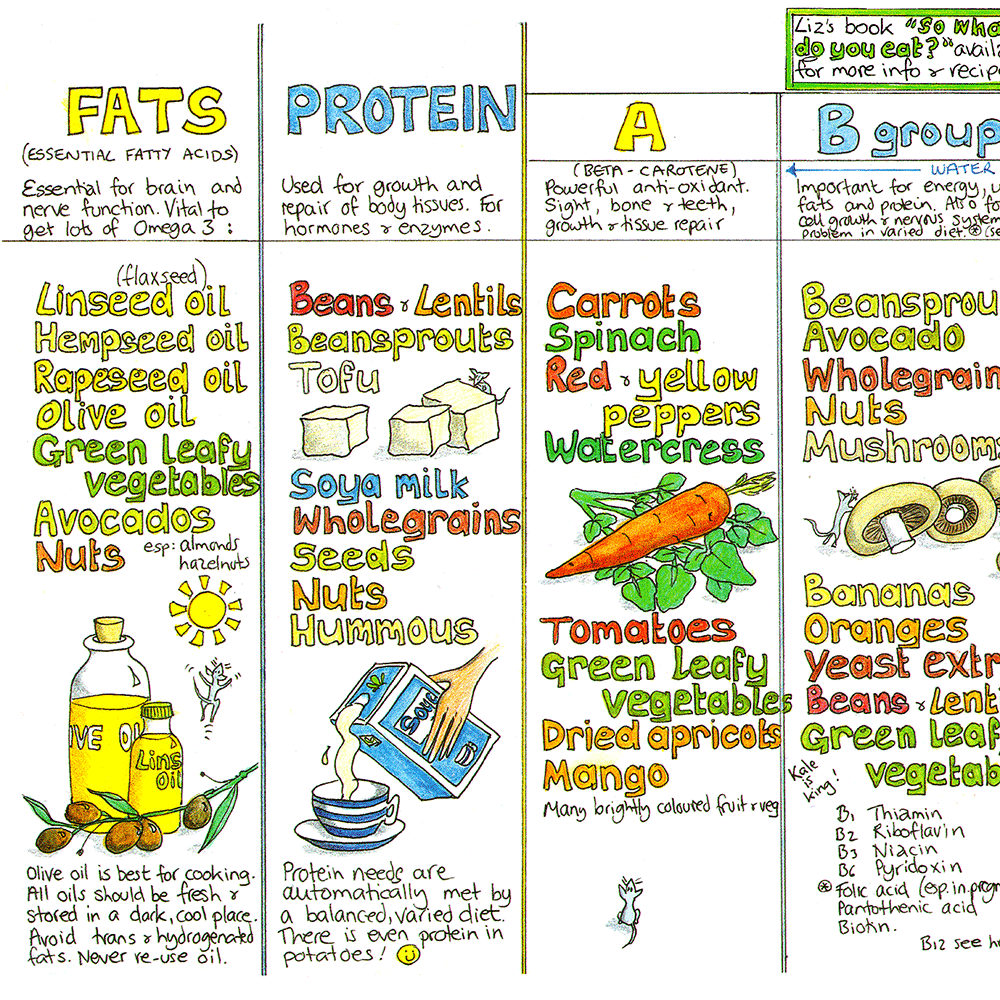 FATS
(ESSENTIAL FATTY ACIDS)
Essential for brain and
nerve function. Vital to
get lots of Omega 3 :
(flaxseed)
Linseed oil
Hempseed oil
Rapeseed oil
Olive oil
Green leafy
vegetables
Avocados
Nuts esp: almonds
hazelnuts
IVE OI
Lins
Oil
Olive oil is best for cooking.
All oils should be fresh &
stored in a dark, cool place.
Avoid trans & hydrogenated
fats. Never re-use oil.
PROTEIN
Used for growth and
repair of body tissues. For
hormones & enzymes.
Beans & Lentils
Beansprouts
Tofu
Soya milk
Wholegrains
Seeds
Nuts
Hummous
Soya
Protein needs are
automatically met by
a balanced, varied diet.
There is even protein in
potatoes!
A
(BETA-CAROTENE)
Powerful anti-oxidant.
Sight, bone & teeth,
growth & tissue repair
Carrots
Spinach
Red & yellow
peppers
Watercress
Tomatoes
Green leafy
vegetables
Dried apricots
Mango
Many brightly coloured fruit & veg
Liz's book "So wha
do you eat?" availa
for more info & recip
B group
WATER
Important for energy, u
fats and protein. Also fo
cell growth & nervous system
problem in varied diet. * (se
Beansprou
Avocado
Wholegrain
Nuts
Mushrooms
Bananas
Oranges
Yeast extr
Beans & Lenti
Green leaf
vegetab
Kale
is
king!
B1 Thiamin
B2 Riboflavin
B3 Niacin
B6 Pyridoxin
* Folic acid (esp. in pregn
Pantothenic acid
Biotin.
B12 see h